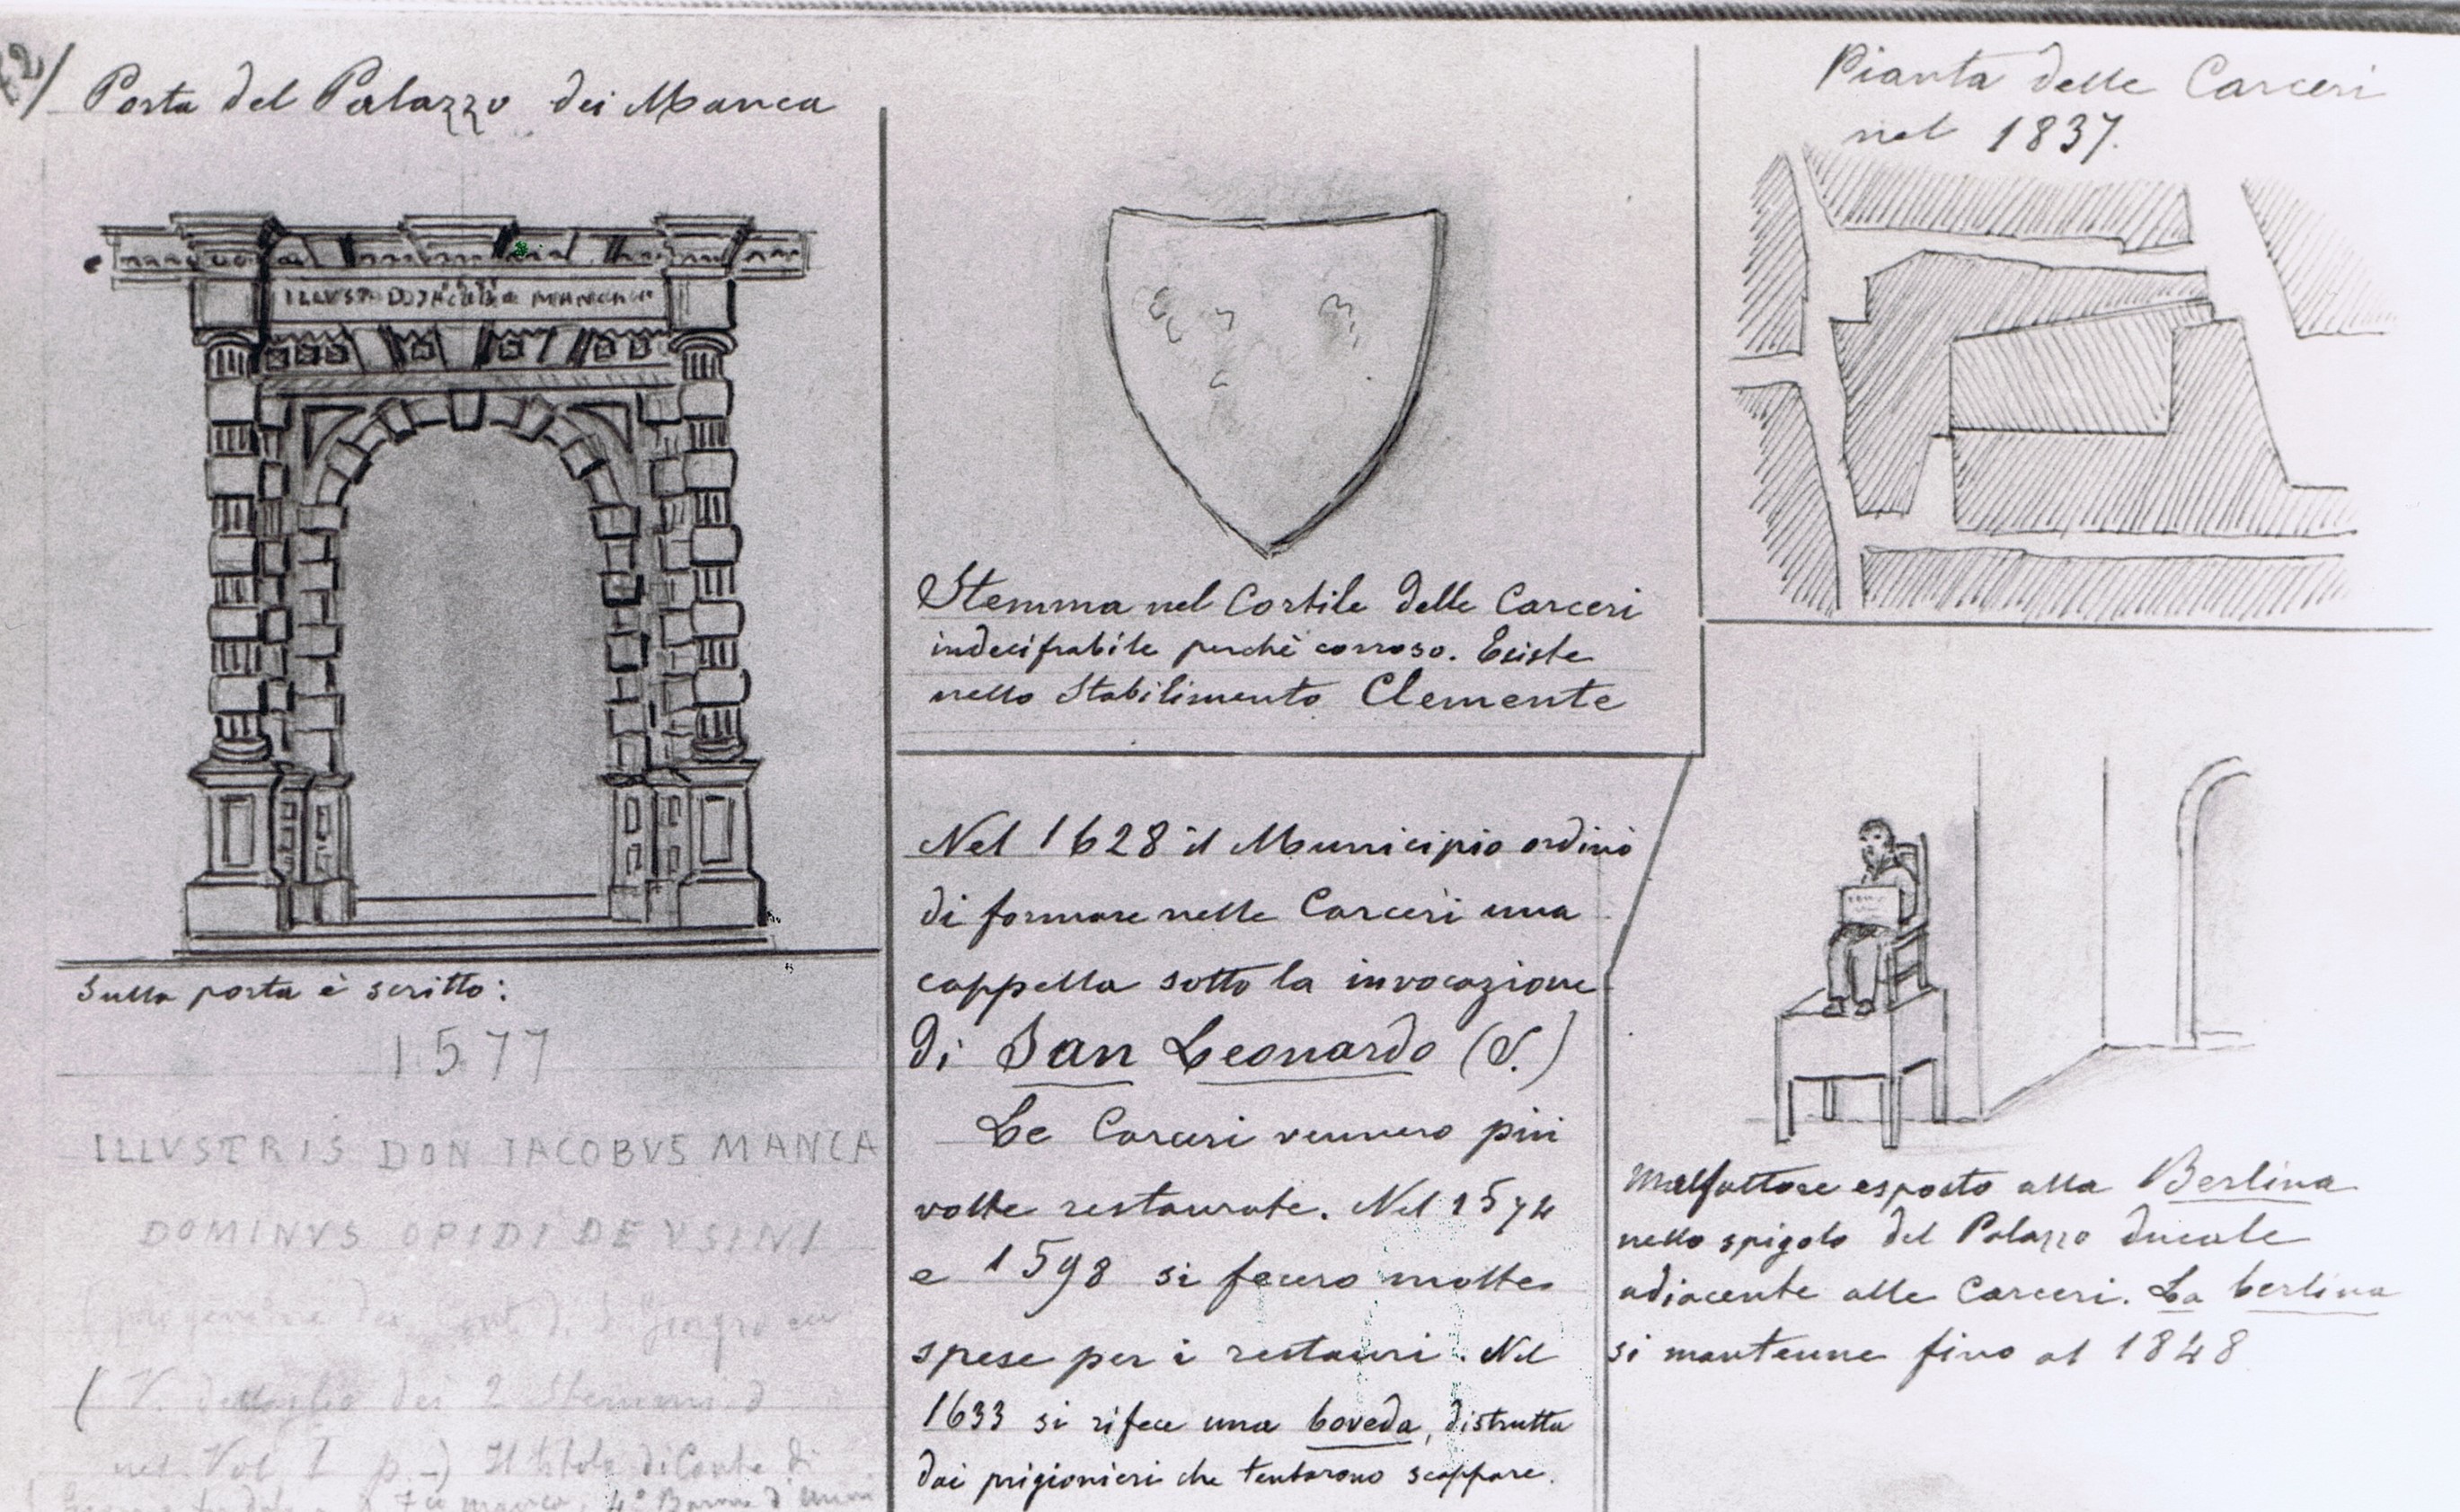 Porta del Palazzo dei Manca
ILLVST
Sulla porta è scritto:
1577
ILLVSTRIS DON IACOBVS MANCA
DOMINVS OPIDI DE VSINI
( V. dettaglio dei 2 Stemmi
nel Vol I p. -) Il titolo di Conte di
Stemma nel Cortile delle Carceri
indecifrabile perchè corroso. Esiste
nello Stabilimento Clemente
Nel 1628 il Municipio ordinò
di formare nelle Carceri una
cappella sotto la invocazione
di San Leonardo (S.)
Le Carceri vennero più
volte restaurate. Nel 1574
e 1598 si fecero molte
spese per i restauri. Nel
1633 si rifece una boveda, distrutta
dai prigionieri che tentarono scappare.
Pianta delle Carceri
nel 1837.
Malfattore esposto alla Berlina
nello spigolo del Palazzo ducale
adiacente alle Carceri. La berlina
si mantenne fino al 1848